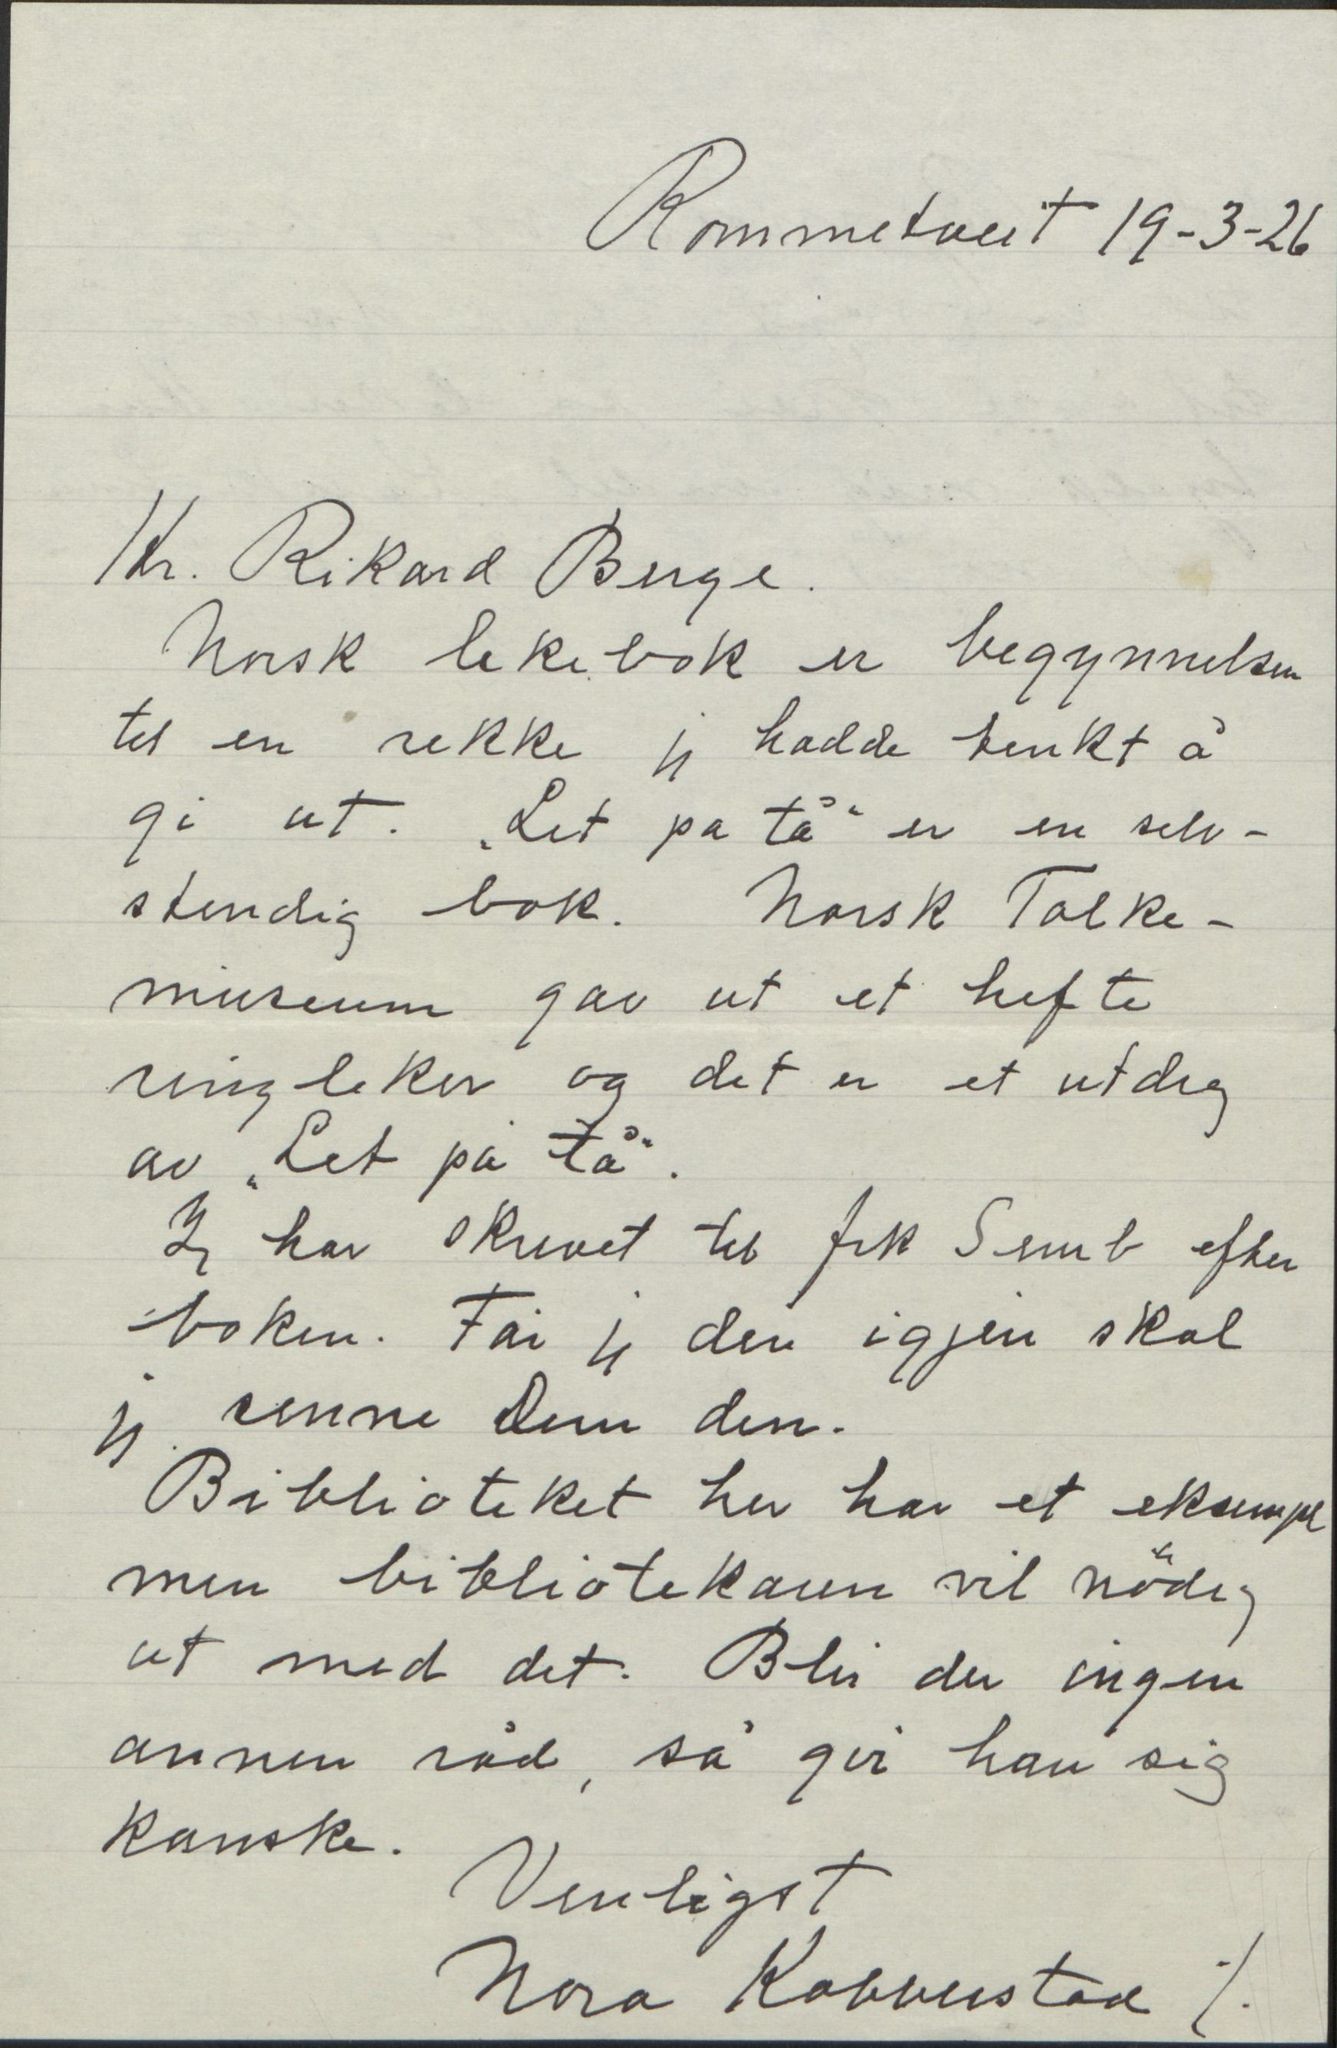 Rommetveit 19-3-26
Hr. Rikard Berge.
Norsk lekebok er begynnelsen
til en rekke jeg hadde tenkt å
gi ut. „Let på tå“ er en selv-
stendig bok. Norsk Folke-
museum gav ut et hefte
ringleker og det er et utdrag
av „Let på tå“.
Jeg har skrevet til frk Semb efter
boken. Får jeg den igjen skal
jeg senne Dem den.
Biblioteket her har et eksempl
men bibliotekaren vil nödig
ut med det. Blir der ingen
annen råd, så gir han sig
kanske.
Venligst
Nora Kobberstad /.